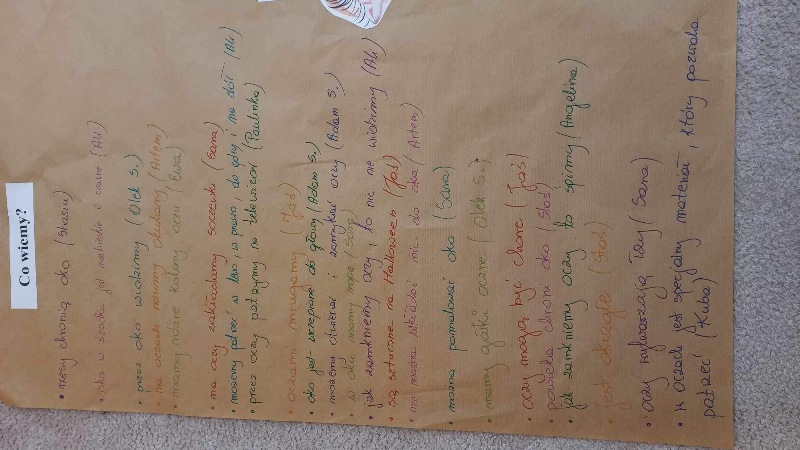 Co wiemy?
• rzęsy chronią oko (Stasiu)
• oko w środku jest niebieskie i czarne (Ali)
• przez oko widzimy (Olek S.)
• na oczach mamy okulary (Artem)
• mamy różne kolory oczu (Ewa)
• na oczy zakładamy soczewki (Sana)
• możemy patrzeć w lewo, w prawo, do góry i na dół (Ali)
• przez oczy patrzymy na telewizor (Paulinka)
• oczami mrugamy (Jaś)
• oko jest wczepione do głowy (Adam S.)
• możemy otwierać i zamykać oczy (Adam S.)
• w oku mamy (Sana)
• jak zamkniemy oczy, to nic nie widzimy (Ali)
• są sztuczne na Halloween (Jaś)
nie można wkładać nic do oka (Artem)
• można pomalować oko (Sana)
• mamy gałki oczne (Olek S.)
• oczy mogą być chore (Jaś)
powieka chroni oko (Staś)
• jak zamkniemy oczy to śpimy (Angelina)
• jest okrągłe (Staś)
• oczy wytwarzają łzy (Sana)
• w oczach jest specjalny materiał, który pozwala
patrzeć (Kuba)